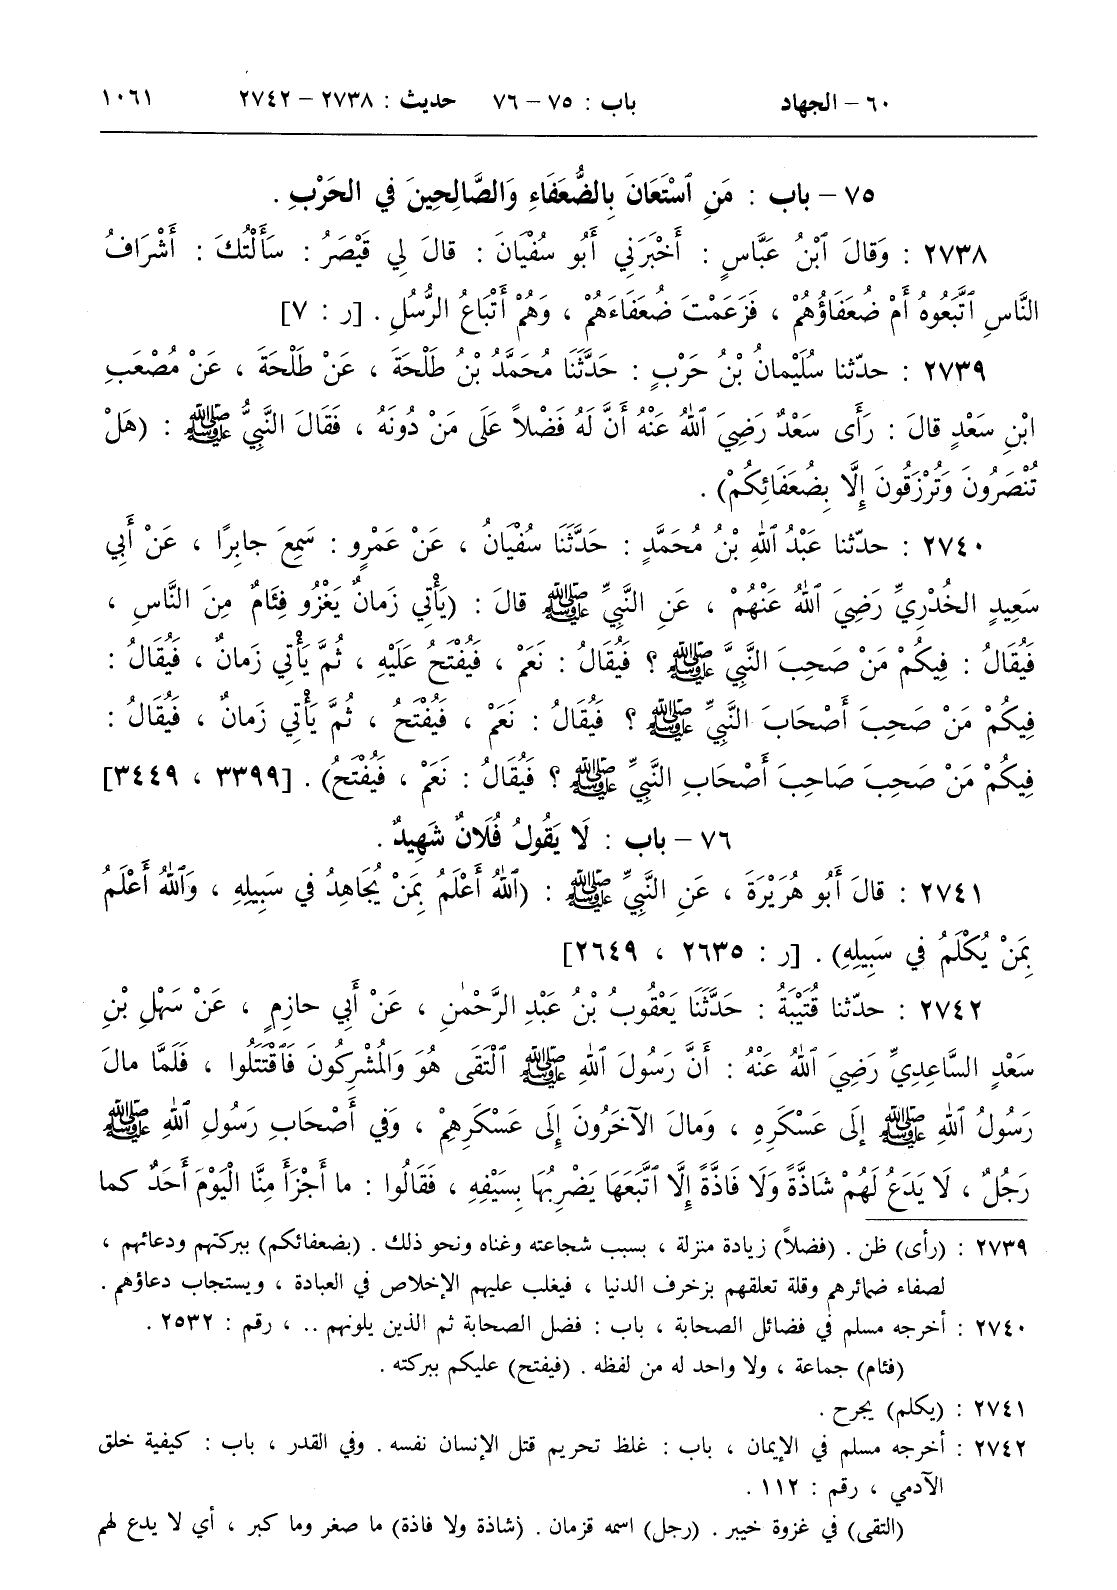 ٦٠ – الجهاد باب : ٧٥ – ٧٦ حديث : ٢٧٣٨ – ٢٧٤٢ ١٠٦١
٧٥ – باب : مَنِ ٱسْتَعَانَ بِالضُّعَفَاءِ وَالصَّالِحِينَ فِي الحَرْبِ .
٢٧٣٨ : وَقالَ ٱبْنُ عَبَّاسٍ : أَخْبَرَنِي أَبُو سُفْيَانَ : قالَ لِي قَيْصَرُ : سَأَلْتُكَ : أَشْرَافُ
النَّاسِ ٱتَّبَعُوهُ أَمْ ضُعَفَاؤُهُمْ ، فَزَعَمْتَ ضُعَفَاءَهُمْ ، وَهُمْ أَتْبَاعُ الرُّسُلِ . [ر : ٧]
٢٧٣٩ : حدّثنا سُلَيْمانُ بْنُ حَرْبٍ : حَدَّثَنَا مُحَمَّدُ بْنُ طَلْحَةَ ، عَنْ طَلْحَةَ ، عَنْ مُصْعَبِ
ابْنِ سَعْدٍ قالَ : رَأَى سَعْدٌ رَضِيَ ٱللهُ عَنْهُ أَنَّ لَهُ فَضْلاً عَلَى مَنْ دُونَهُ ، فَقَالَ النَّبِيُّ ﷺ : (هَلْ
تُنْصَرُونَ وَتُرْزَقُونَ إِلَّا بِضُعَفَائِكُمْ) .
٢٧٤٠ : حدّثنا عَبْدُ ٱللهِ بْنُ مُحَمَّدٍ : حَدَّثَنَا سُفْيَانُ ، عَنْ عَمْرٍو : سَمِعَ جابِرًا ، عَنْ أَبِي
سَعِيدٍ الخُدْرِيِّ رَضِيَ ٱللهُ عَنْهُمْ ، عَنِ النَّبِيِّ ﷺ قالَ : (يَأْتِي زَمانٌ يَغْزُو فِئَامٌ مِنَ النَّاسِ ،
فَيُقَالُ : فِيكُمْ مَنْ صَحِبَ النَّبِيَّ ﷺ ؟ فَيُقَالُ : نَعَمْ ، فَيُفْتَحُ عَلَيْهِ ، ثُمَّ يَأْتِي زَمانٌ ، فَيُقَالُ :
فِيكُمْ مَنْ صَحِبَ أَصْحَابَ النَّبِيِّ ﷺ ؟ فَيُقَالُ : نَعَمْ ، فَيُفْتَحُ ، ثُمَّ يَأْتِي زَمانٌ ، فَيُقَالُ :
فِيكُمْ مَنْ صَحِبَ صَاحِبَ أَصْحَابِ النَّبِيِّ ﷺ ؟ فَيُقَالُ : نَعَمْ ، فَيُفْتَحُ) . [٣٣٩٩ ، ٣٤٤٩]
٧٦ – باب : لَا يَقُولُ فُلَانٌ شَهِيدٌ .
٢٧٤١ : قالَ أَبُو هُرَيْرَةَ ، عَنِ النَّبِيِّ ﷺ : (ٱللهُ أَعْلَمُ بِمَنْ يُجَاهِدُ فِي سَبِيلِهِ ، وَٱللهُ أَعْلَمُ
بِمَنْ يُكْلَمُ فِي سَبِيلِهِ) . [ر : ٢٦٣٥ ، ٢٦٤٩]
٢٧٤٢ : حدّثنا قُتَيْبَةُ : حَدَّثَنَا يَعْقُوبُ بْنُ عَبْدِ الرَّحْمٰنِ ، عَنْ أَبِي حازِمٍ ، عَنْ سَهْلِ بْنِ
سَعْدٍ السَّاعِدِيِّ رَضِيَ ٱللهُ عَنْهُ : أَنَّ رَسُولَ ٱللهِ ﷺ ٱلْتَقَى هُوَ وَالْمُشْرِكُونَ فَٱقْتَتَلُوا ، فَلَمَّا مالَ
رَسُولُ ٱللهِ ﷺ إِلَى عَسْكَرِهِ ، وَمالَ الآخَرُونَ إِلَى عَسْكَرِهِمْ ، وَفِي أَصْحَابِ رَسُولِ ٱللهِ ﷺ
رَجُلٌ ، لَا يَدَعُ لَهُمْ شَاذَّةً وَلَا فَاذَّةً إِلَّا ٱتَّبَعَهَا يَضْرِبُهَا بِسَيْفِهِ ، فَقَالُوا : ما أَجْزَأَ مِنَّا الْيَوْمَ أَحَدٌ كما
٢٧٣٩ : (رأى) ظن . (فضلاً) زيادة منزلة ، بسبب شجاعته وغناه ونحو ذلك . (بضعفائكم) ببركتهم ودعائهم ،
لصفاء ضمائرهم وقلة تعلقهم بزخرف الدنيا ، فيغلب عليهم الإخلاص في العبادة ، ويستجاب دعاؤهم .
٢٧٤٠ : أخرجه مسلم في فضائل الصحابة ، باب : فضل الصحابة ثم الذين يلونهم .. ، رقم : ٢٥٣٢ .
(فئام) جماعة ، ولا واحد له من لفظه . (فيفتح) عليكم ببركته .
٢٧٤١ : (يكلم) يجرح .
٢٧٤٢ : أخرجه مسلم في الإيمان ، باب : غلظ تحريم قتل الإنسان نفسه . وفي القدر ، باب : كيفية خلق
الآدمي ، رقم : ١١٢ .
(التقى) في غزوة خيبر . (رجل) اسمه قزمان . (شاذة ولا فاذة) ما صغر وما كبر ، أي لا يدع لهم